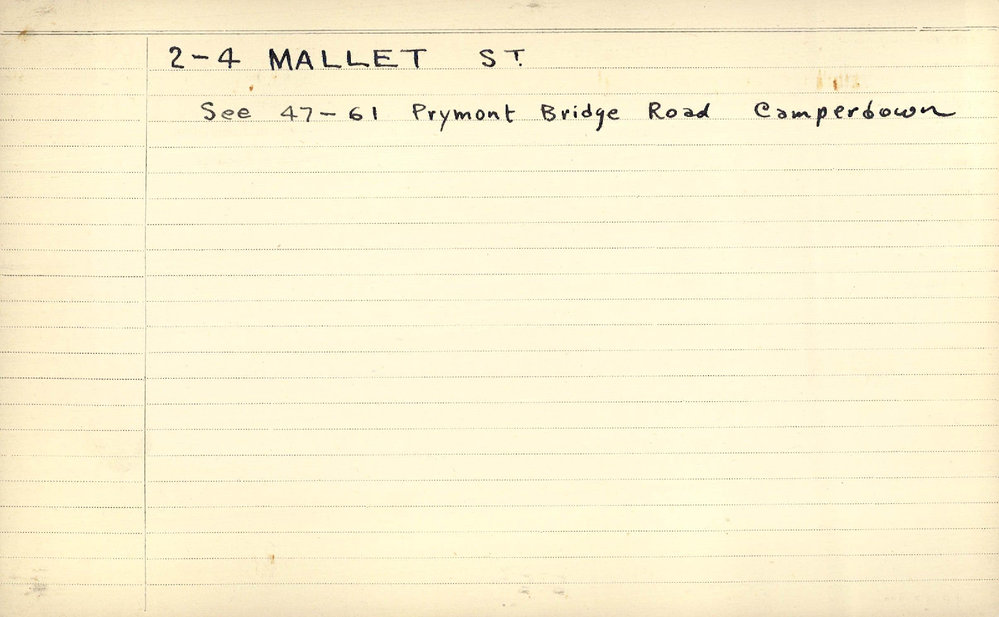 2-4 MALLET ST.
See 47-61 Prymont Bridge Road Camperdown